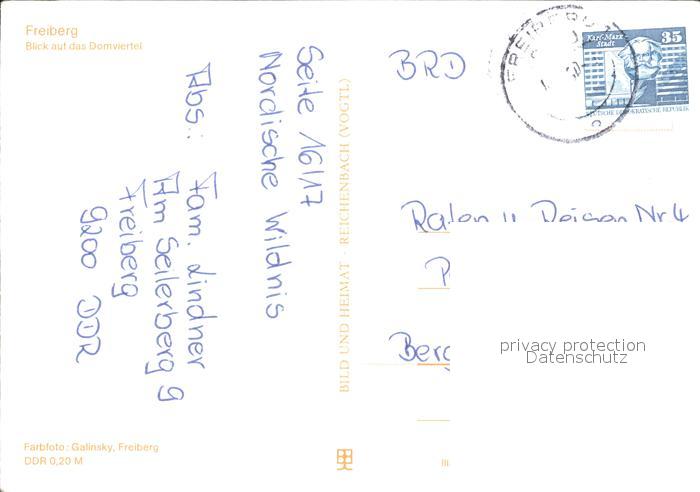 Freiberg
Blick auf das Domviertel
Seite 16/17
Nordische Wildnis
Abs.: Fam. Lindner
Am Seilerberg 9
Freiberg
9200 DDR
Farbfoto: Galinsky, Freiberg
DDR 0,20 M
BILD UND HEIMAT · REICHENBACH (VOGTL)
BRD
FREIBERG
Karl-Marx-
Stadt
35
DEUTSCHE DEMOKRATISCHE REPUBLIK
Nr 4
privacy protection
Datenschutz